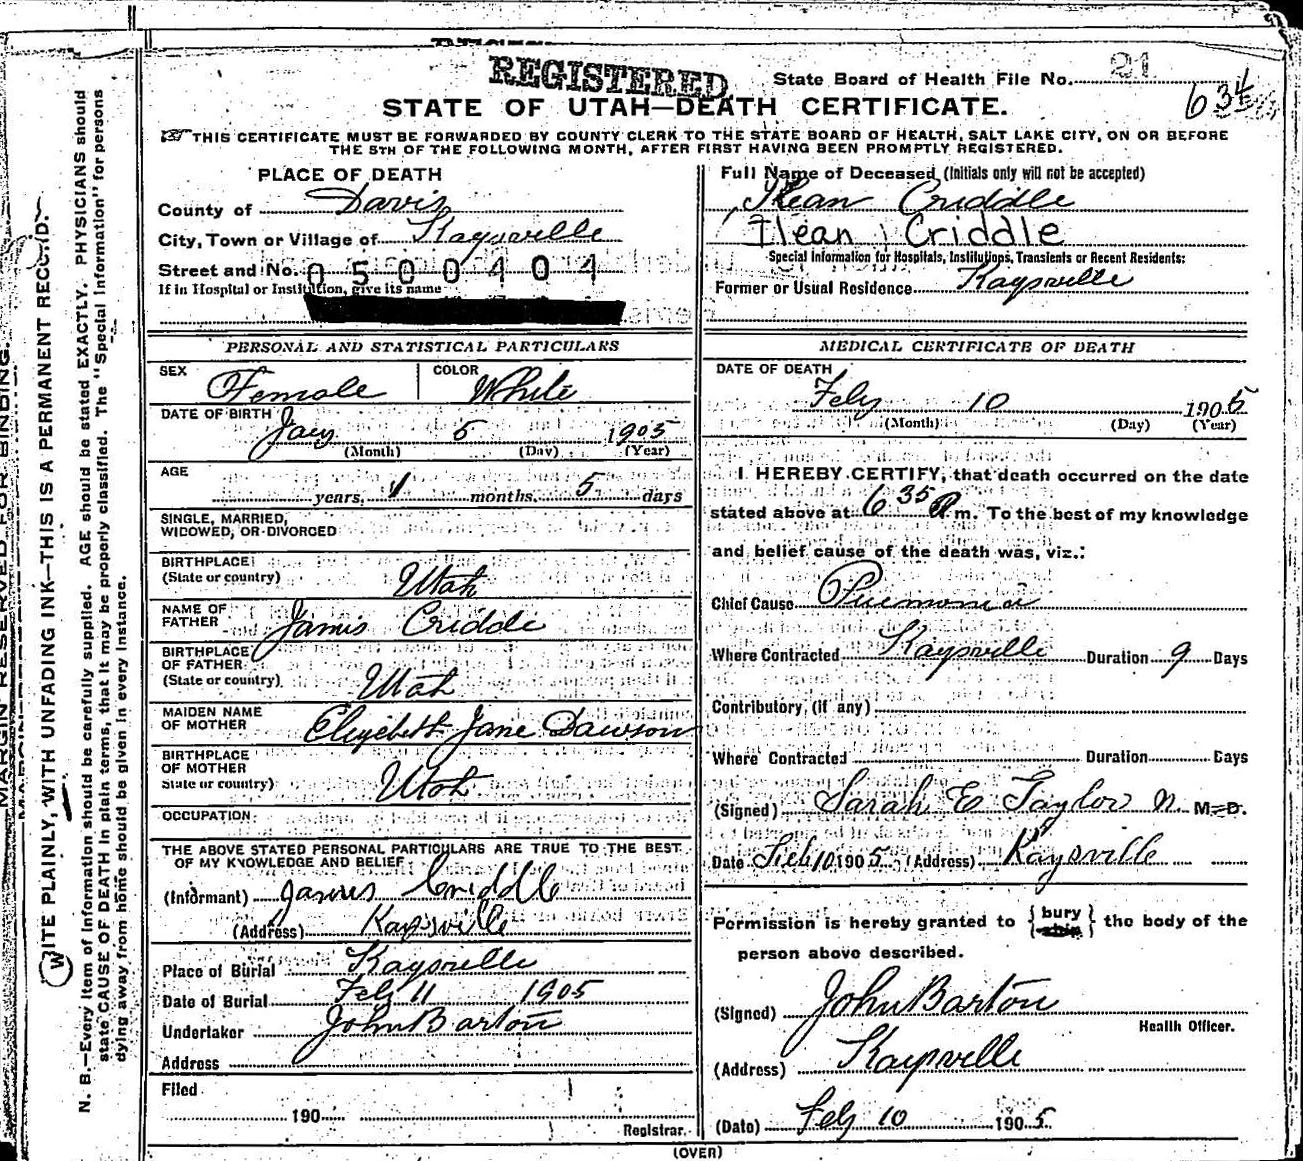 REGISTERED
State Board of Health File No. 21
634
STATE OF UTAH—DEATH CERTIFICATE.
THIS CERTIFICATE MUST BE FORWARDED BY COUNTY CLERK TO THE STATE BOARD OF HEALTH, SALT LAKE CITY, ON OR BEFORE
THE 5TH OF THE FOLLOWING MONTH, AFTER FIRST HAVING BEEN PROMPTLY REGISTERED.
PLACE OF DEATH
County of Davis
City, Town or Village of Kaysville
Street and No. 0500404
If in Hospital or Institution, give its name
Full Name of Deceased (Initials only will not be accepted)
Ilean Criddle
Ilean Criddle
Special Information for Hospitals, Institutions, Transients or Recent Residents:
Former or Usual Residence Kaysville
PERSONAL AND STATISTICAL PARTICULARS
SEX Female COLOR White
DATE OF BIRTH Jany 5 1905
(Month) (Day) (Year)
AGE years, 1 months. 5 days
SINGLE, MARRIED,
WIDOWED, OR DIVORCED
BIRTHPLACE
(State or country) Utah
NAME OF
FATHER James Criddle
BIRTHPLACE
OF FATHER
(State or country) Utah
MAIDEN NAME
OF MOTHER Elizebeth Jane Dawson
BIRTHPLACE
OF MOTHER
State or country) Utah
OCCUPATION
THE ABOVE STATED PERSONAL PARTICULARS ARE TRUE TO THE BEST
OF MY KNOWLEDGE AND BELIEF
(Informant) James Criddle
(Address) Kaysville
Place of Burial Kaysville
Date of Burial Feby 11 1905
Undertaker John Barton
Address
Filed
190
Registrar.
MEDICAL CERTIFICATE OF DEATH
DATE OF DEATH
Feby 10 1905
(Month) (Day) (Year)
I HEREBY CERTIFY, that death occurred on the date
stated above at 6 35 P m. To the best of my knowledge
and belief cause of the death was, viz.:
Chief Cause Pnemonia
Where Contracted Kaysville Duration 9 Days
Contributory, (if any)
Where Contracted Duration Days
(Signed) Sarah E Taylor M. D.
Date Feb 10 1905 (Address) Kaysville
Permission is hereby granted to {bury ship} the body of the
person above described.
(Signed) John Barton
Health Officer.
(Address) Kaysville
(Date) Feby 10 1905
(OVER)
MARGIN RESERVED FOR BINDING.
WRITE PLAINLY, WITH UNFADING INK—THIS IS A PERMANENT RECORD.
N. B.—Every item of information should be carefully supplied. AGE should be stated EXACTLY. PHYSICIANS should
state CAUSE OF DEATH in plain terms, that it may be properly classified. The "Special Information" for persons
dying away from home should be given in every instance.